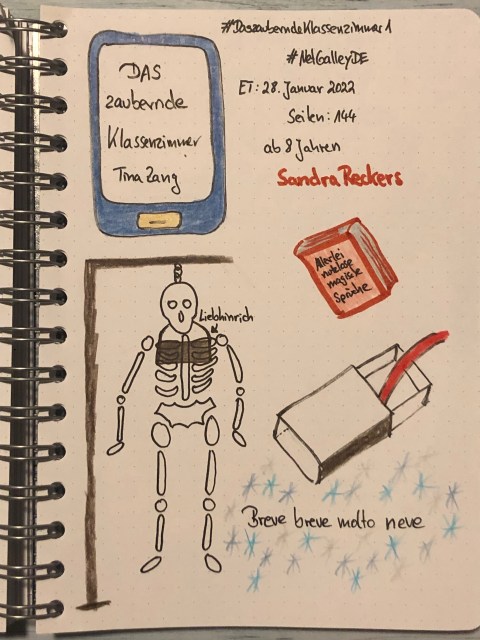 DAS
zaubernde
Klassenzimmer
Tina Zang
#DaszauberndeKlassenzimmer1
#NetGalleyDE
ET: 28. Januar 2022
Seiten: 144
ab 8 Jahren
Sandra Reckers
Allerlei
nutzlose
magische
Sprüche
Liebhinrich
Breve breve molto neve